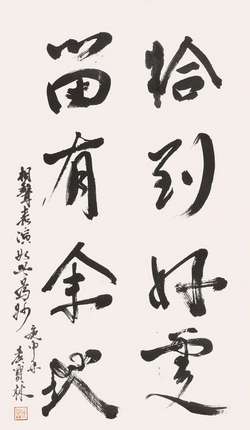 恰到好处
留有余地
相声表演如此为妙
庚申冬
侯宝林